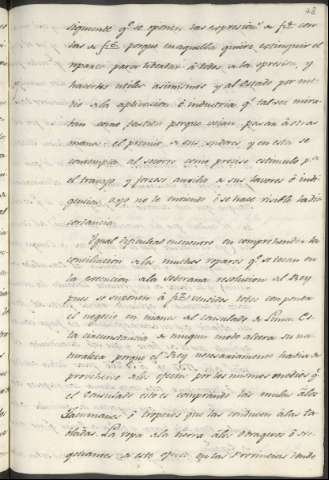 48
siguiente q.e se oponen las expresion.s a f.s con
las a f.s porque en aquella quiere extinguir el
reparto para libertar á todos de la opresion y
hacerlos utiles asimismo y al Estado por me
dio de la aplicacion é industria q.e tal vez mira
rán como fastidio porque dejan pasar á otra
mano el premio de sus sudores y en esta se
contempla el socorro como preciso estimulo p.a
el trabajo, y auxilio a sus labores é indi
gencias, Yo no lo entiendo ó se hace visible la dis
cordancia.
Igual dificultad encuentro en comprender la
conciliacion de los muchos reparos q.e se tocan en
la execucion de la soberana resolucion del Rey
pues se suponen á f.s vencidos todos con poner
el negocio en manos del consulado de Lima. Es
ta circunstancia de ningun modo altera su na
turaleza porque el Rey necesariamente habia de
proveherse de los efectos por los mismos medios q.e
el Consulado esto es comprando las mulas á los
Tucumanes ó troperos que las conducen á las ta
bladas. La ropa de la tierra á los obrageros ó
de este efecto en las Provincias donde